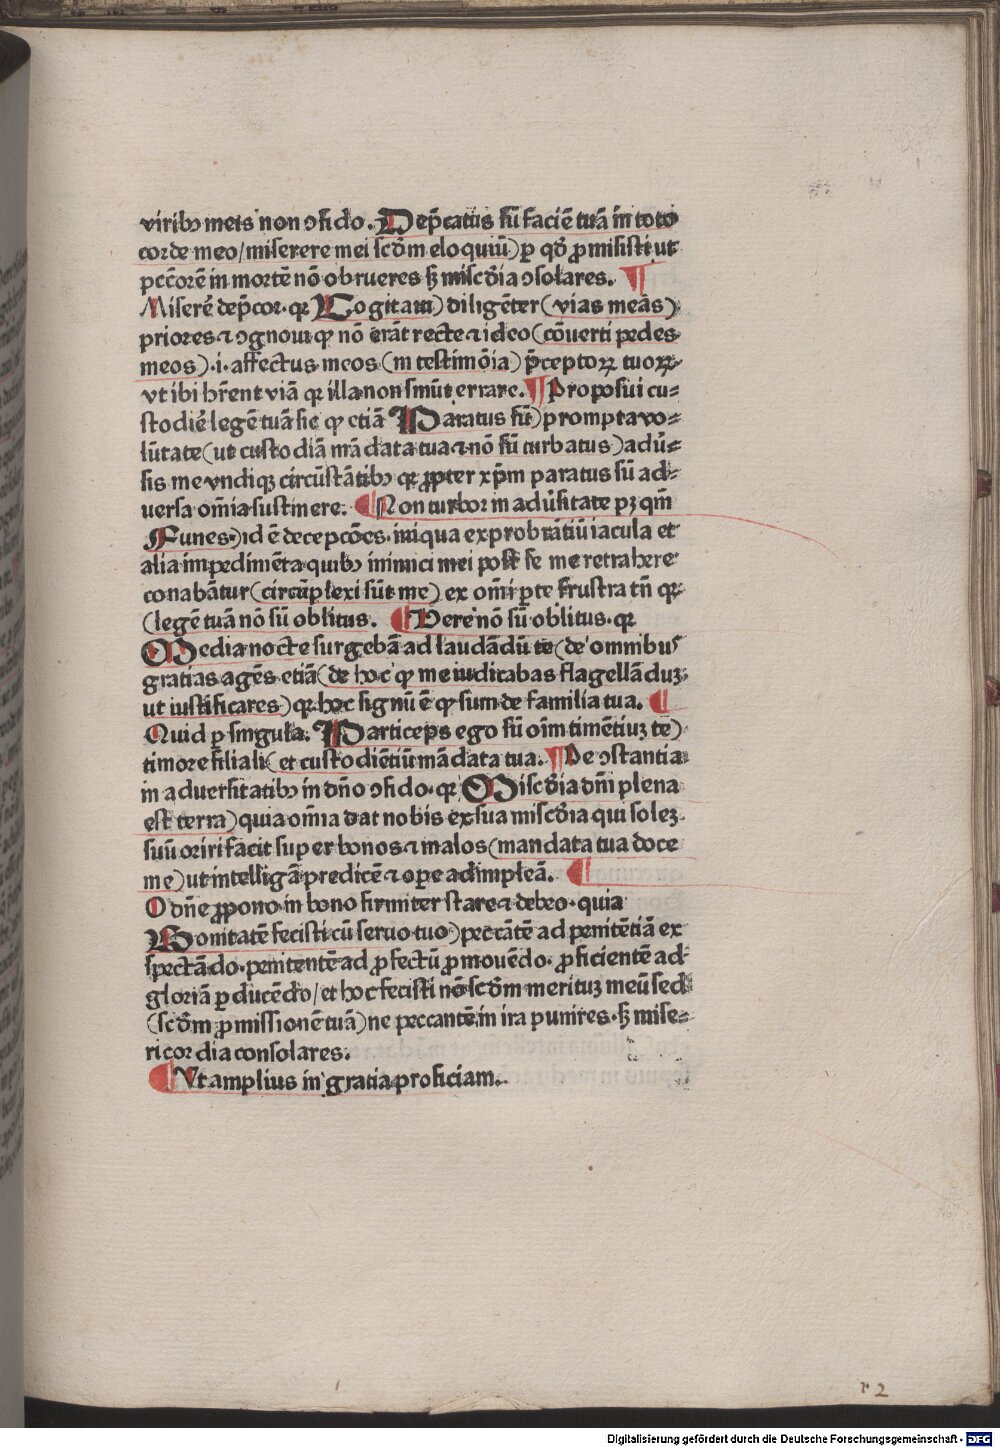 viribꝰ meis non ꝯfido. Dep̄catus sū faciē tuā in toto
corde meo/miserere mei scd̄m eloquiū) ꝑ qd̄ ꝓmisisti ut
pccōrē in mortē nō obrueres sꝫ misc̄dia ꝯsolares. ¶
Miserē dep̄cor. qꝛ Cogitaui) diligēter (vias meās)
priores ⁊ ꝯgnoui ꝙ nō erāt recte ⁊ ideo (cōuerti pedes
meos) .i. affectus meos (in testimōia) p̄ceptoꝝ tuoꝝ.
vt ibi hr̄ent viā qꝛ illa non sinūt errare. ¶ Proposui cu⸗
stodiē legē tuā sic ꝙ etiā Paratus sū) prompta vo⸗
lūtate (ut custodiā mādata tua ⁊ nō sū turbatus) aduē⸗
sis me vndiqꝫ circūstātibꝰ qꝛ ꝓpter xp̄m paratus sū ad⸗
uersa om̄ia sustinere. ¶ Non turbor in adūsitate pꝫ qm̄
Funes.) id ē decepcōes. iniqua exprobrātiū iacula et
alia impedimēta quibꝰ inimici mei post se me retrahere
conabātur (circūplexi sūt me) ex om̄i ꝑte frustra tn̄ qꝛ
(legē tuā nō sū oblitus. ¶ Vere nō sū oblitus. qꝛ
Media nocte surgebā ad laudādū te (de omnibus
gratias agēs etiā (de hoc ꝙ me iudicabas flagellā duꝫ
ut iustificares) qꝛ hoc signū ē ꝙ sum de familia tua. ¶
Quid ꝑ singula. Particeps ego sū oīm timētiuꝫ te)
timore filiali (et custodiētiū mādata tua. ¶ De ꝯstantia
in aduersitatibꝰ in dn̄o ꝯfido. qꝛ Misc̄dia dn̄i plena
est terra) quia om̄ia dat nobis ex sua misc̄dia qui soleꝫ
suū oriri facit super bonos ⁊ malos (mandata tua doce
me) ut intelligā predicē ⁊ oꝑe adimpleā. ¶
O dn̄e ꝓpono in bono firmiter stare ⁊ debeo. quia
Bonitatē fecisti cū seruo tuo) peccātē ad penitētiā ex
spectādo. penitentē ad ꝓfectū ꝓmouēdo. ꝓficientē ad
gloriā ꝑducēdo/et hoc fecisti nō scd̄m merituꝫ meū sed
(scd̄m ꝓmissionē tuā) ne peccantē in ira punires. sꝫ mise⸗
ricordia consolares.
¶ Vt amplius in gratia proficiam.
r 2
Digitalisierung gefördert durch die Deutsche Forschungsgemeinschaft - DFG